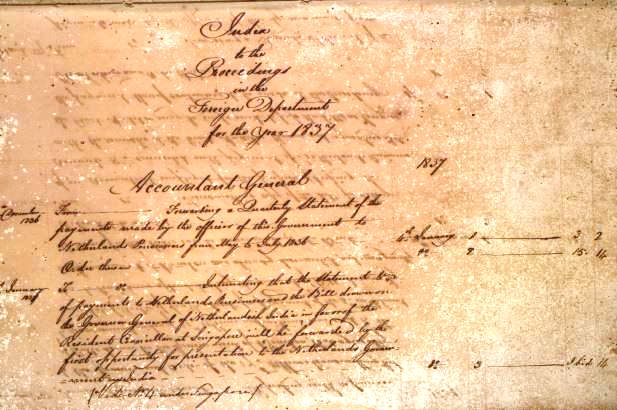 India
to the
Proceedings
in the
Foreign Department
for the Year 1837
1837
Accountant General
1836 From Forwarding a Quarterly Statement of the
payments made by the officers of this Government to
Netherlands Pensioners from May to July 1836 January 1 3 2
Order thereon do 2 15 14
January To do Intimating that the Statement
of payments to Netherlands Pensioners and the Bill drawn on
the Governor General of Netherlands India in favor of the
Resident Councillor at Singapore will be forwarded by the
first opportunity for presentation to the Netherlands Govern
-ment India do 3 Ibid 14
(Vide No. 4 under Singapore)